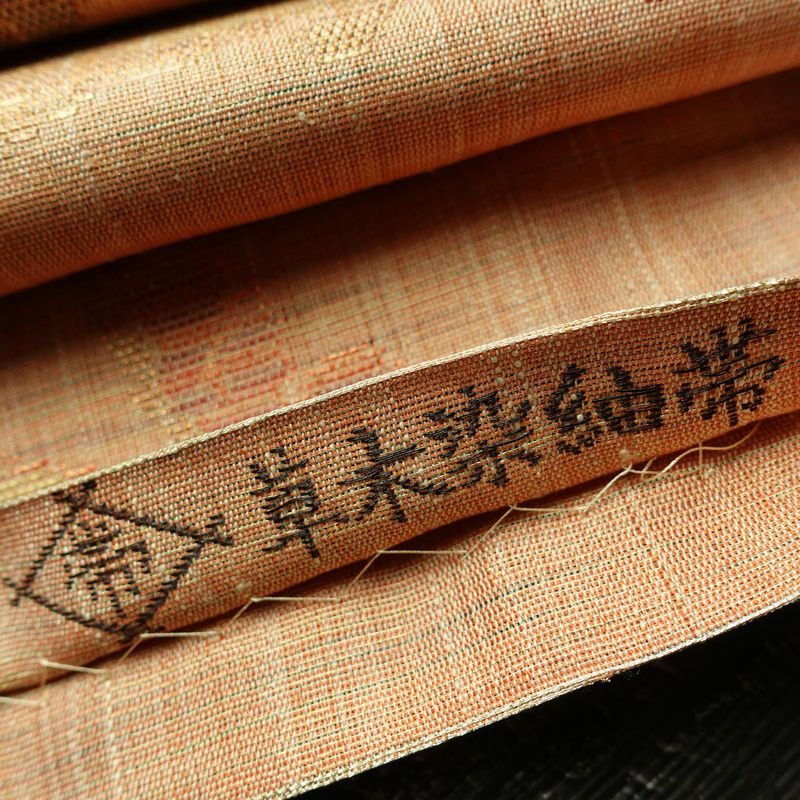 草木染紬帯